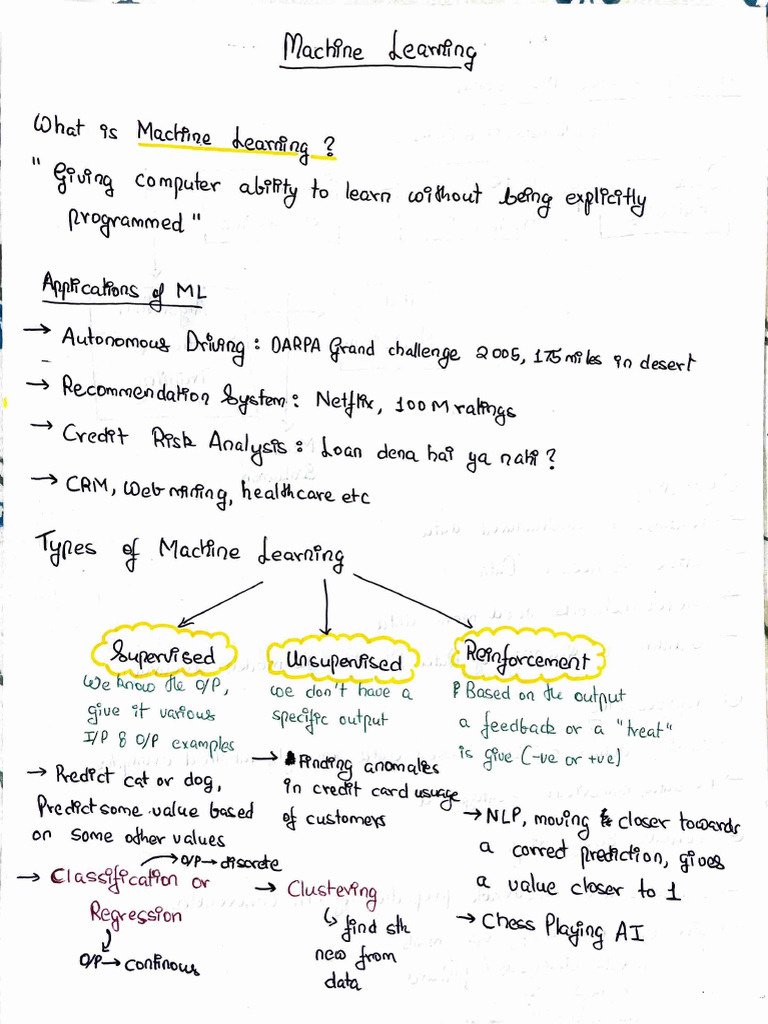 Machine Learning
What is Machine Learning ?
" Giving computer ability to learn without being explicitly
programmed "
Applications of ML
→ Autonomous Driving : DARPA Grand challenge 2005, 175 miles in desert
→ Recommendation System : Netflix, 100 M ratings
→ Credit Risk Analysis : Loan dena hai ya nahi ?
→ CRM, Web mining, healthcare etc
Types of Machine Learning
Supervised
We know the O/P,
give it various
I/P & O/P examples
→ Predict cat or dog,
Predict some value based
on some other values
→ Classification or
→ O/P → discrete
Regression
O/P → continous
Unsupervised
we don't have a
specific output
→ Finding anomalies
in credit card usuage
of customers
→ Clustering
↳ find sth
new from
data
Reinforcement
Based on the output
a feedback or a "treat"
is give (-ve or +ve)
→ NLP, moving closer towards
a correct prediction, gives
a value closer to 1
→ Chess Playing AI